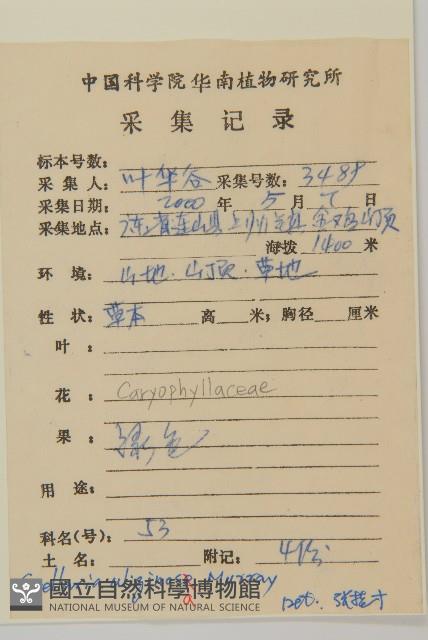 中国科学院华南植物研究所
采集记录
标本号数:
采集人: 叶华谷 采集号数: 3489
采集日期: 2000 年 5 月 日
采集地点: 广东省连山县上帅镇 金鸡山顶
海拨 1400 米
环境: 山地.山顶.草地
性状: 草本 高 米; 胸径 厘米
叶:
花: Caryophyllaceae
果: 绿色
用途:
科名(号): 53
土名: 附记: 4份
Murray
Det.
國立自然科學博物館
NATIONAL MUSEUM OF NATURAL SCIENCE